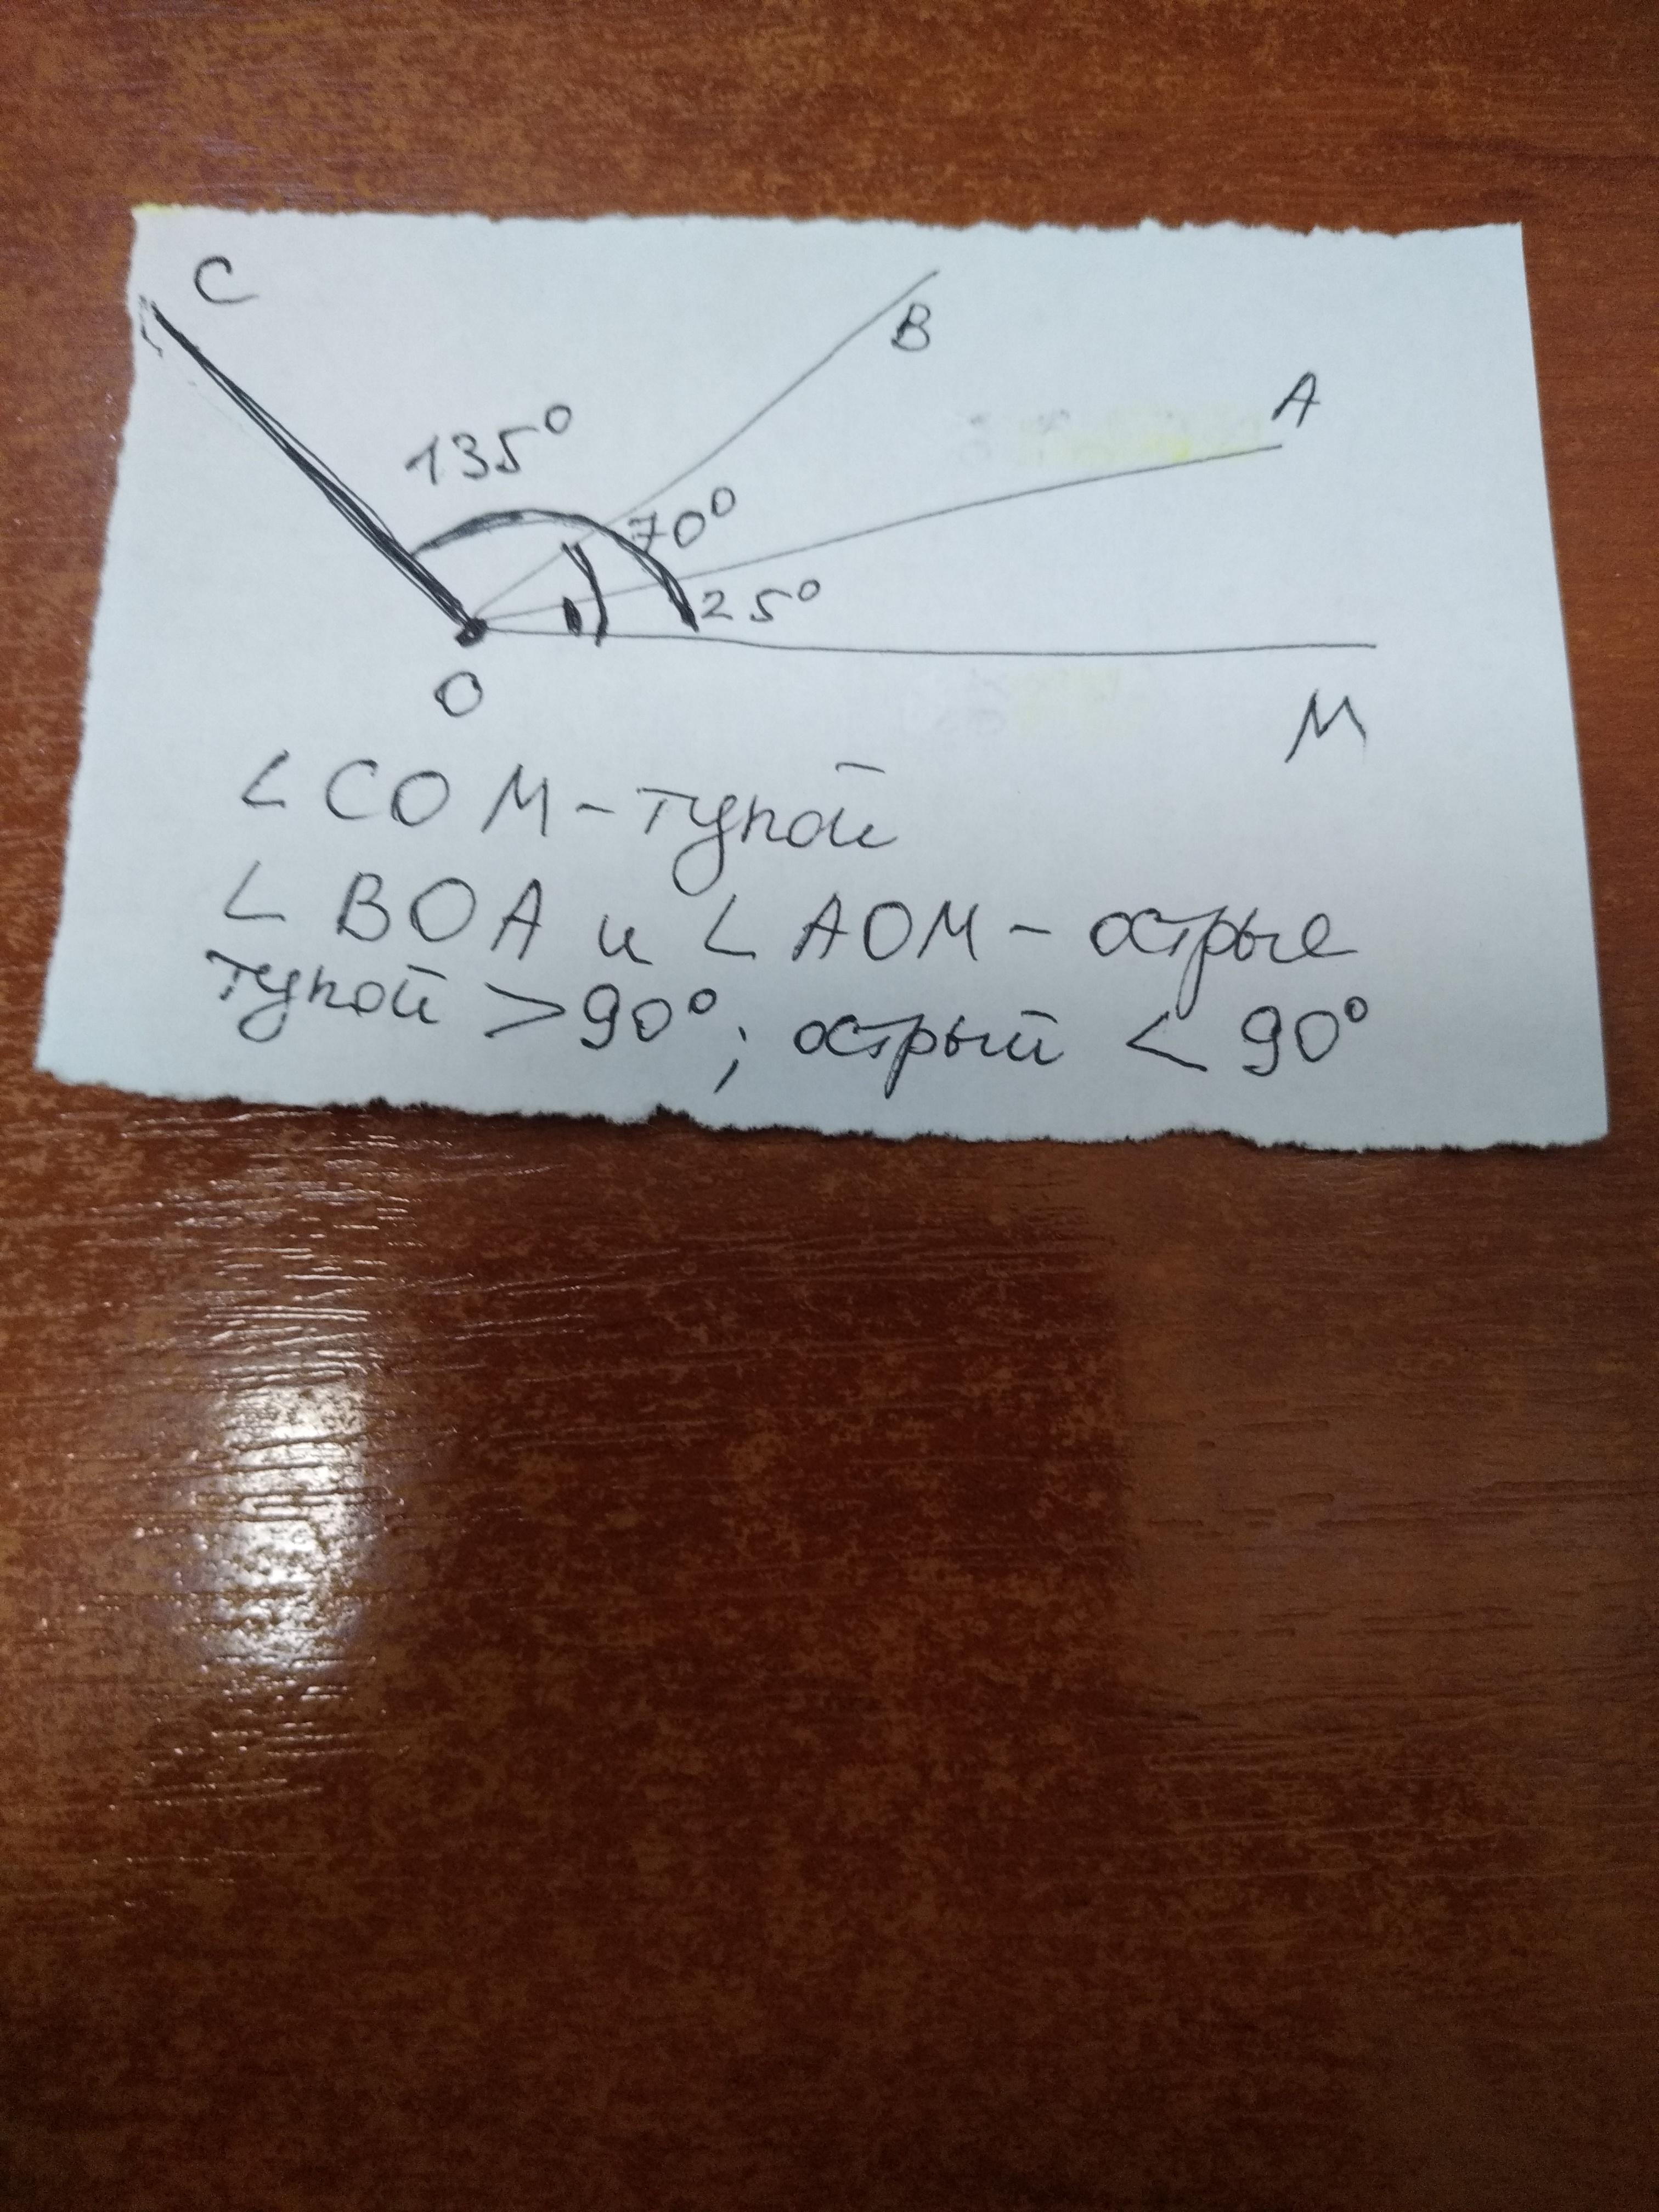 C
B
A
135°
70°
25°
O
M
∠ COM - тупой
∠ BOA и ∠ AOM - острые
тупой > 90°; острый < 90°